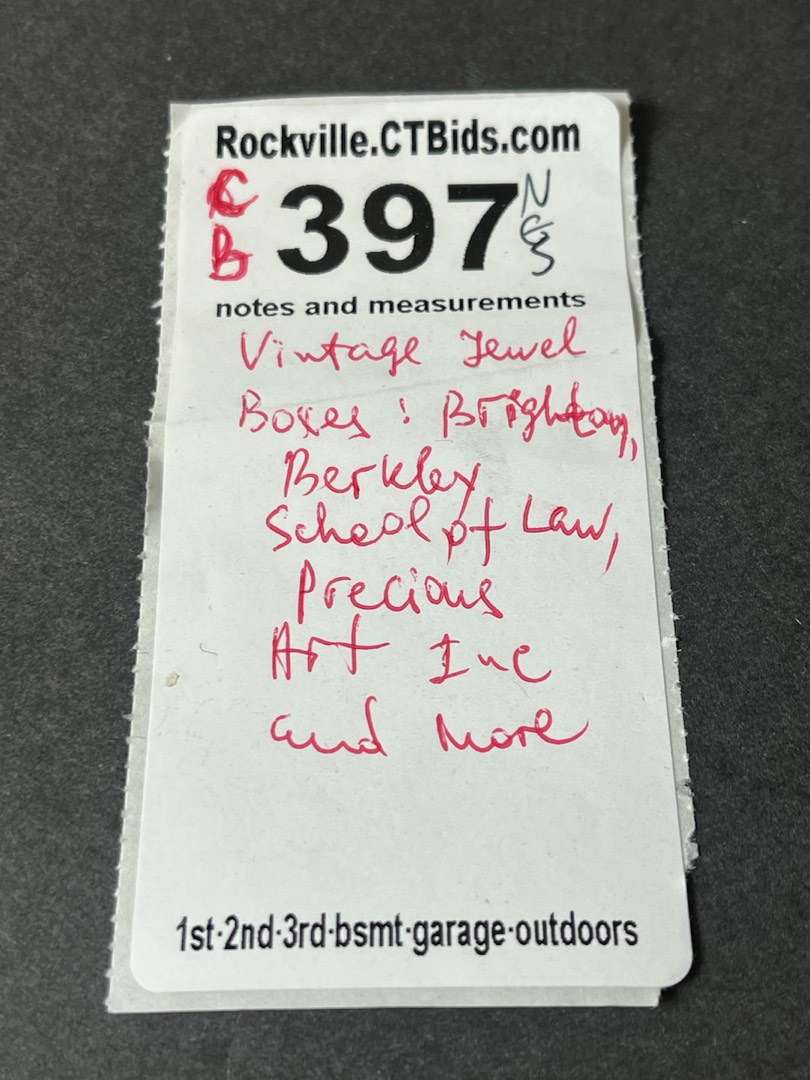 Rockville.CTBids.com
C 397 N
B G
S
notes and measurements
Vintage Jewel
Boxes : Brighton,
Berkley
School of Law,
Precious
Art Inc
and more
1st·2nd·3rd·bsmt·garage·outdoors